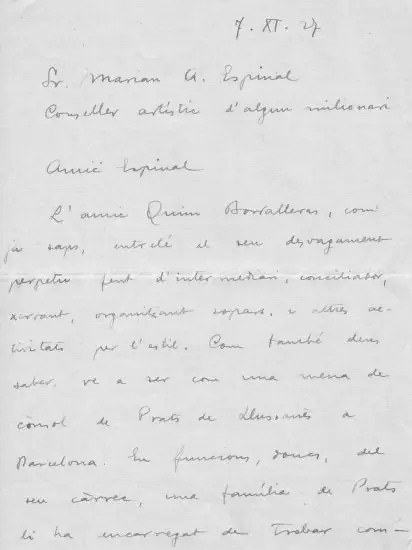 7 · XI · 27
Sr. Marian A. Espinal
Conseller artístic d'algun milionari
Amic Espinal
L'amic Quim Borralleras, com
ja saps, entreté el seu desvagament
perpetu fent d'intermediari, conciliador,
xerrant, organitzant sopars, i altres ac-
tivitats per l'estil. Com també deus
saber, ve a ser com una mena de
cònsol de Prats de Llusanès a
Barcelona. En funcions, doncs, del
seu càrrec, una família de Prats
li ha encarregat de trobar com-